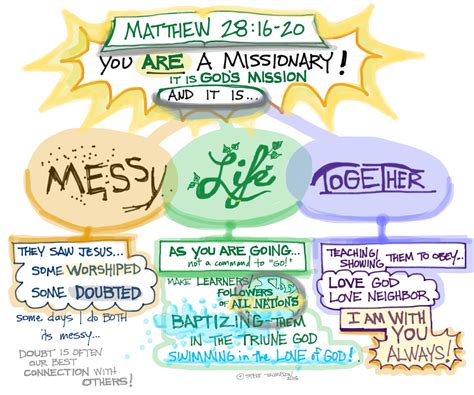 MATTHEW 28:16-20
YOU ARE A MISSIONARY!
IT IS GOD'S MISSION
AND IT IS...
MESSY
Life
TOGETHER
THEY SAW JESUS...
SOME WORSHIPED
SOME DOUBTED
some days I do BOTH
its messy...
DOUBT IS OFTEN
OUR BEST
CONNECTION WITH
OTHERS!
AS YOU ARE GOING...
not a command to "GO!"
MAKE LEARNERS
FOLLOWERS
OF ALL NATIONS
BAPTIZING THEM
IN THE TRIUNE GOD
SWIMMING in the LOVE OF GOD!
TEACHING/
SHOWING THEM TO OBEY...
LOVE GOD
LOVE NEIGHBOR
I AM WITH
YOU
ALWAYS!